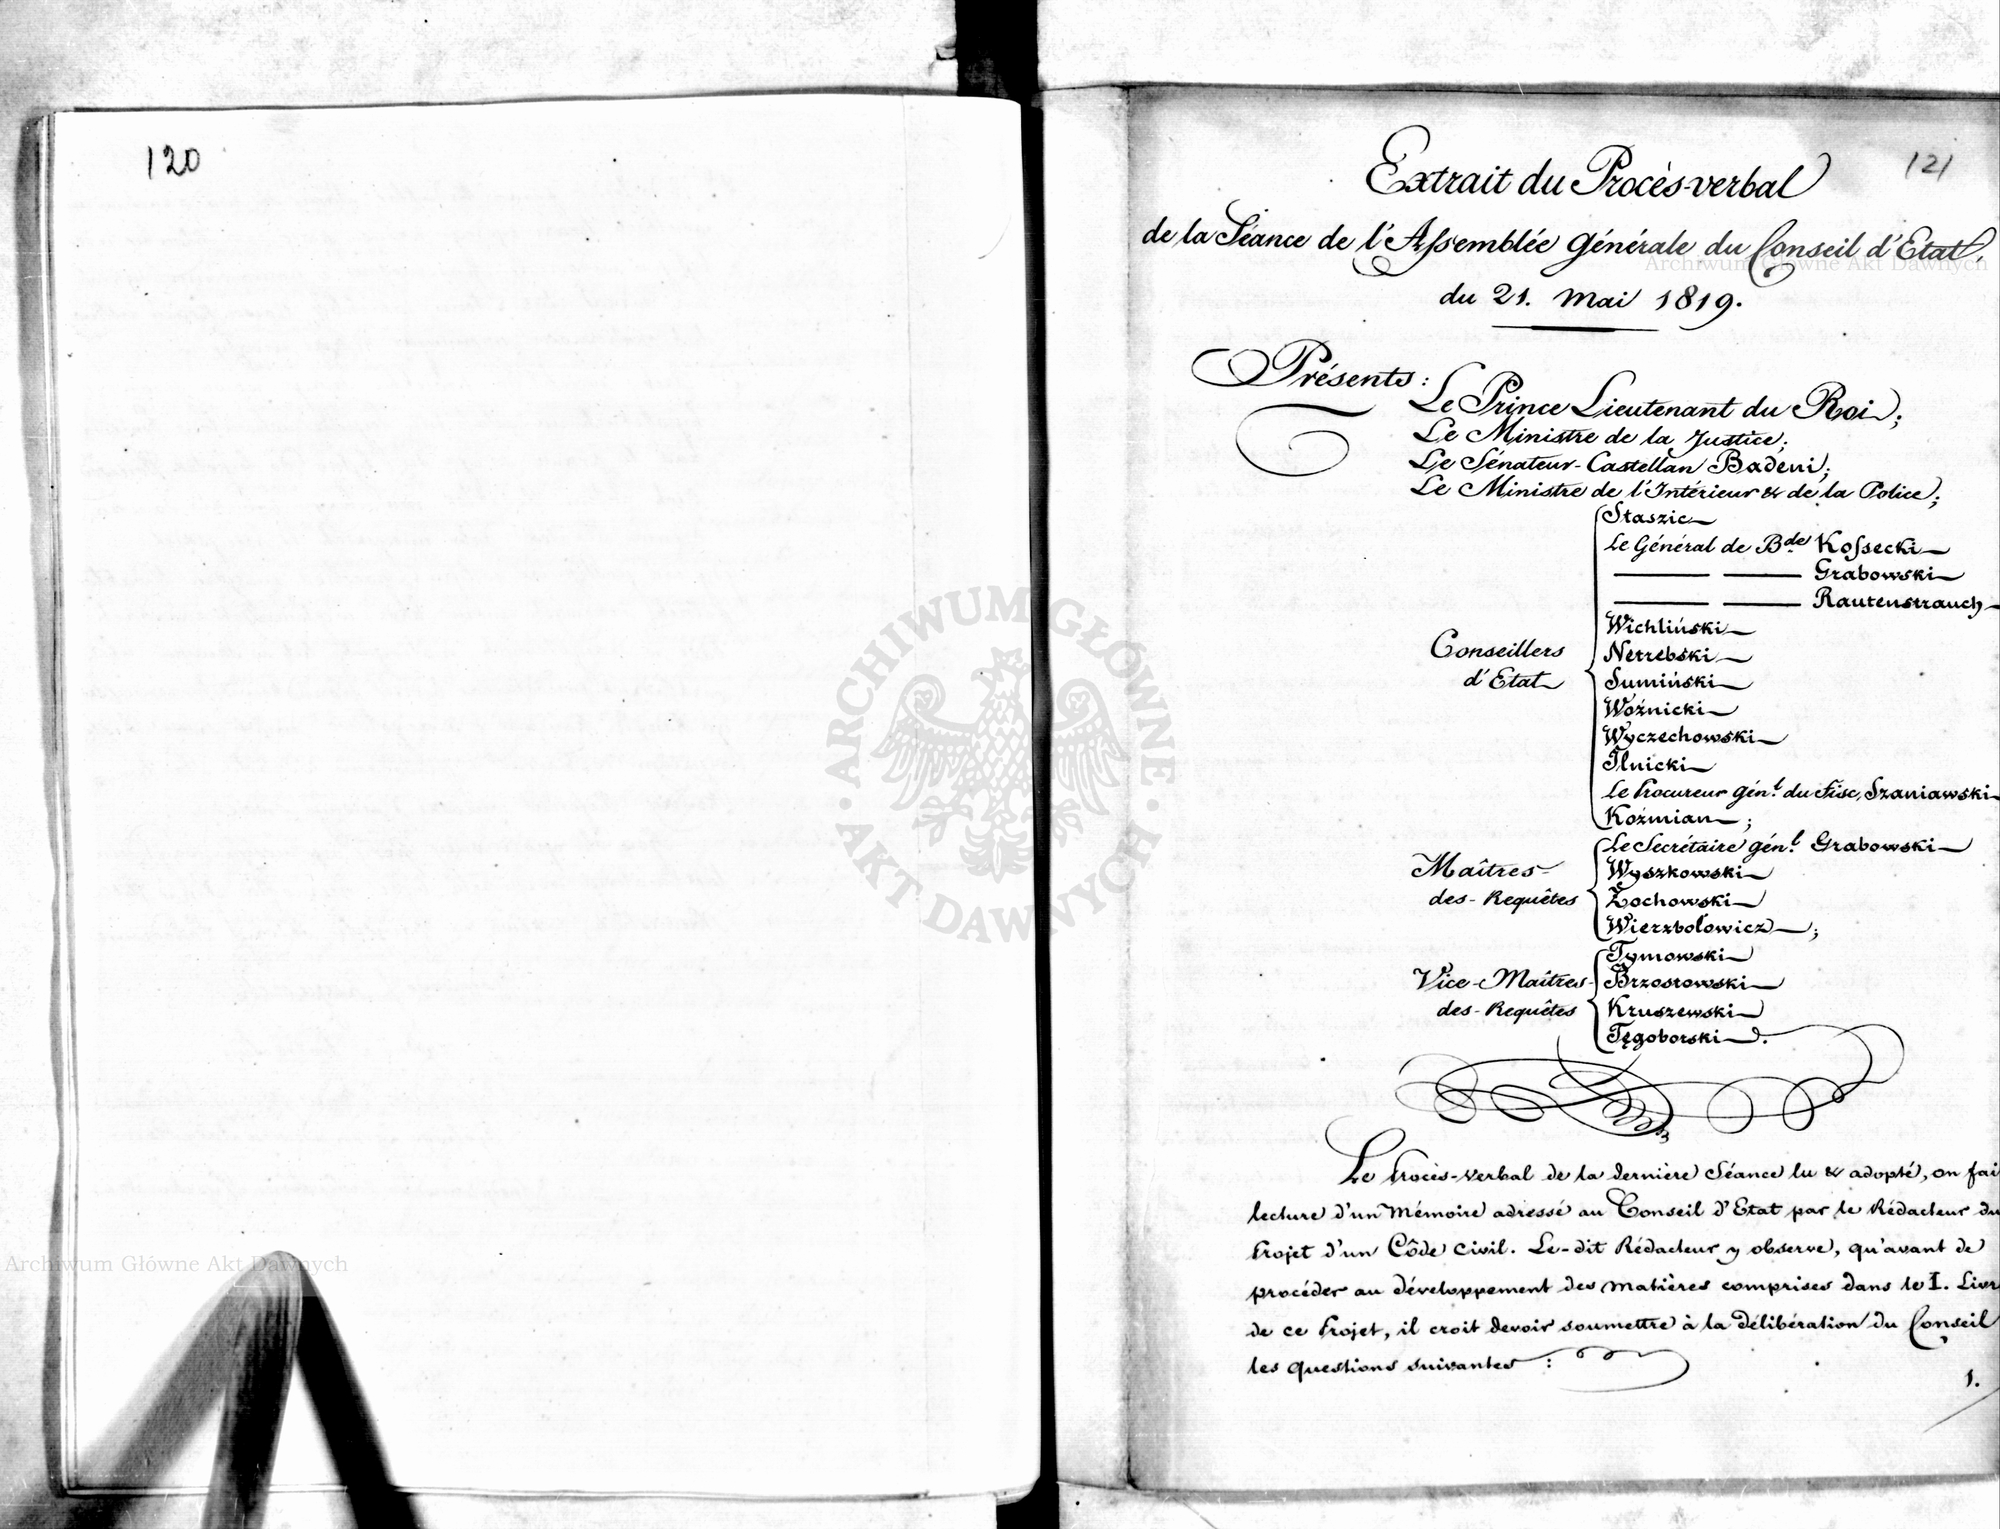 120
121
Extrait du Procès-verbal
de la Séance de l'Assemblée Générale du Conseil d'Etat,
du 21. Mai 1819.
Présents:
Le Prince Lieutenant du Roi;
Le Ministre de la Justice;
Le Sénateur-Castellan Badeni;
Le Ministre de l'Intérieur & de la Police;
Conseillers
d'Etat
Staszic
Le Général de Bde Kossecki
Grabowski
Rautenstrauch
Wichliński
Netrebski
Sumiński
Woźnicki
Wyczechowski
Ilnicki
Le Procureur génl. du Fisc, Szaniawski
Koźmian;
Maîtres-
des-Requêtes
Le Secrétaire génl. Grabowski
Wyszkowski
Żochowski
Wierzbołowicz;
Vice-Maîtres-
des-Requêtes
Tymowski
Brzostowski
Kruszewski
Tęgoborski.
Le Procès-verbal de la dernière Séance lu & adopté, on fai
lecture d'un Mémoire adressé au Conseil d'Etat par le Rédacteur du
Projet d'un Côde civil. Le-dit Rédacteur y observe, qu'avant de
procéder au développement des matières comprises dans le I. Livr
de ce Projet, il croit devoir soumettre à la délibération du Conseil
les questions suivantes:
1.
Archiwum Główne Akt Dawnych
Archiwum Główne Akt Dawnych
ARCHIWUM GŁÓWNE
AKT DAWNYCH